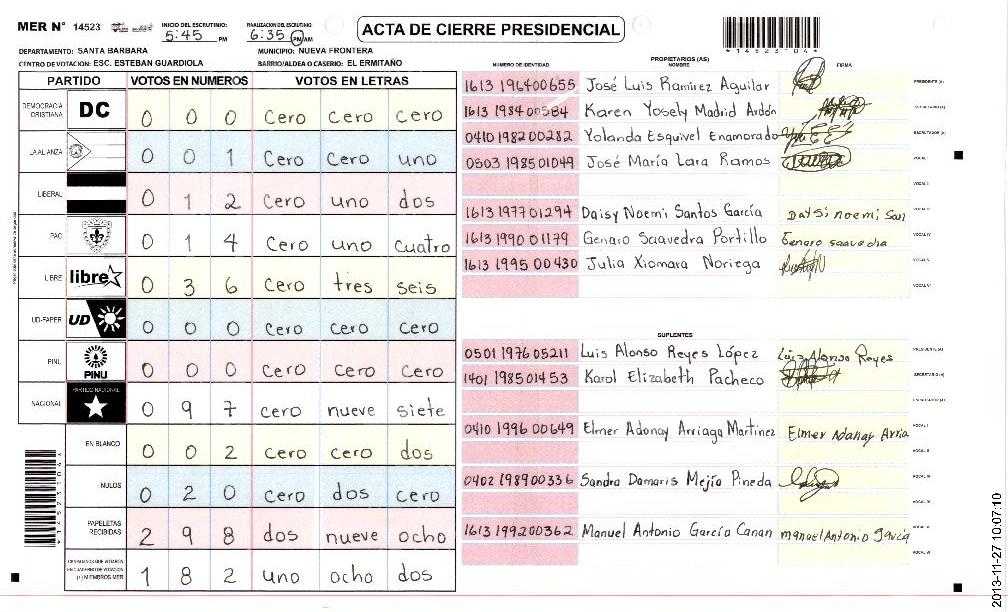 MER N° 14523
INICIO DEL ESCRUTINIO: 5:45 PM
FINALIZACION DEL ESCRUTINIO: 6:35 PM AM
ACTA DE CIERRE PRESIDENCIAL
*1452310 4*
DEPARTAMENTO: SANTA BARBARA
MUNICIPIO: NUEVA FRONTERA
CENTRO DE VOTACION: ESC. ESTEBAN GUARDIOLA
BARRIO/ALDEA O CASERIO: EL ERMITAÑO
PARTIDO VOTOS EN NUMEROS VOTOS EN LETRAS
DEMOCRACIA CRISTIANA DC 0 0 0 Cero Cero Cero
LA ALIANZA 0 0 1 Cero Cero uno
LIBERAL 0 1 2 Cero uno dos
PAC 0 1 4 Cero uno cuatro
LIBRE libre 0 3 6 Cero tres seis
UD-FAPER UD 0 0 0 Cero Cero Cero
PINU PINU 0 0 0 Cero Cero Cero
NACIONAL PARTIDO NACIONAL 0 9 7 cero nueve siete
EN BLANCO 0 0 2 cero cero dos
NULOS 0 2 0 cero dos cero
PAPELETAS RECIBIDAS 2 9 8 dos nueve ocho
CIUDADANOS QUE VOTARON EN CUADERNO DE VOTACION (+) MIEMBROS MER 1 8 2 uno ocho dos
PROPIETARIOS (AS)
NUMERO DE IDENTIDAD NOMBRE FIRMA
1613 196400655 José Luis Ramírez Aguilar PRESIDENTE (A)
1613 198400584 Karen Yosely Madrid Ardón SECRETARIO (A)
0410 198200282 Yolanda Esquivel Enamorado ESCRUTADOR (A)
0503 198501049 José María Lara Ramos VOCAL I
VOCAL II
1613 197701294 Daisy Noemi Santos García Daysi noemi San
1613 199001179 Genaro Saavedra Portillo Genaro saavedra VOCAL IV
1613 1995 00430 Julia Xiomara Noriega VOCAL V
VOCAL VI
SUPLENTES
0501 1976 05211 Luis Alonso Reyes López Luis Alonso Reyes PRESIDENTE (A)
1401 198501453 Karol Elizabeth Pacheco SECRETARIO (A)
ESCRUTADOR (A)
0410 1996 00649 Elmer Adonay Arriaga Martínez Elmer Adonay Arria VOCAL I
VOCAL II
0402 198900336 Sandra Damaris Mejía Pineda VOCAL III
VOCAL IV
1613 199200362 Manuel Antonio García Canan manuel Antonio Garcia VOCAL V
VOCAL VI
2013-11-27 10:07:10